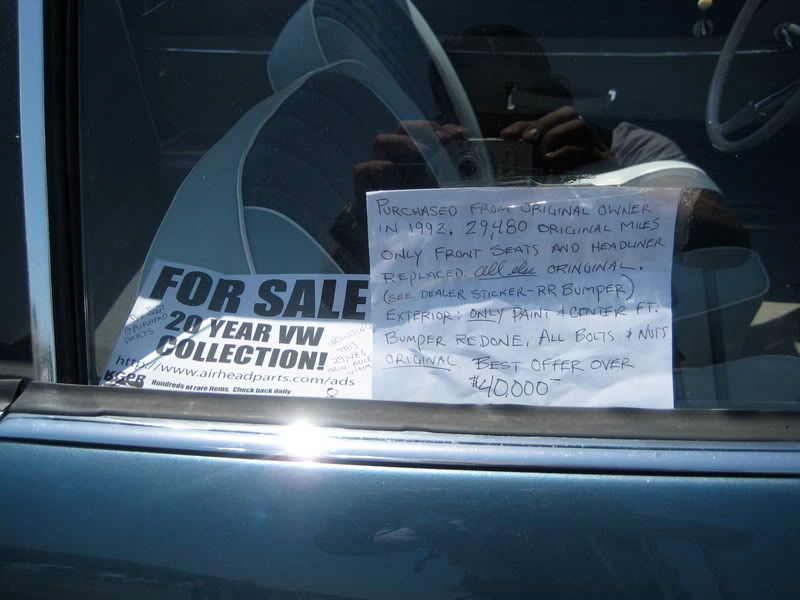 PURCHASED FROM ORIGINAL OWNER
IN 1992. 29,480 ORIGINAL MILES
ONLY FRONT SEATS AND HEADLINER
REPLACED. all else ORINGINAL.
(SEE DEALER STICKER-RR BUMPER)
EXTERIOR: ONLY PAINT & CENTER FT.
BUMPER REDONE, ALL BOLTS & NUTS
ORIGINAL. BEST OFFER OVER
$40,000
FOR SALE
20 YEAR VW
COLLECTION!
http://www.airheadparts.com/ads
Hundreds of rare items. Check back daily
@ AIRHEAD
PARTS
INCLUDING
THIS
29,486